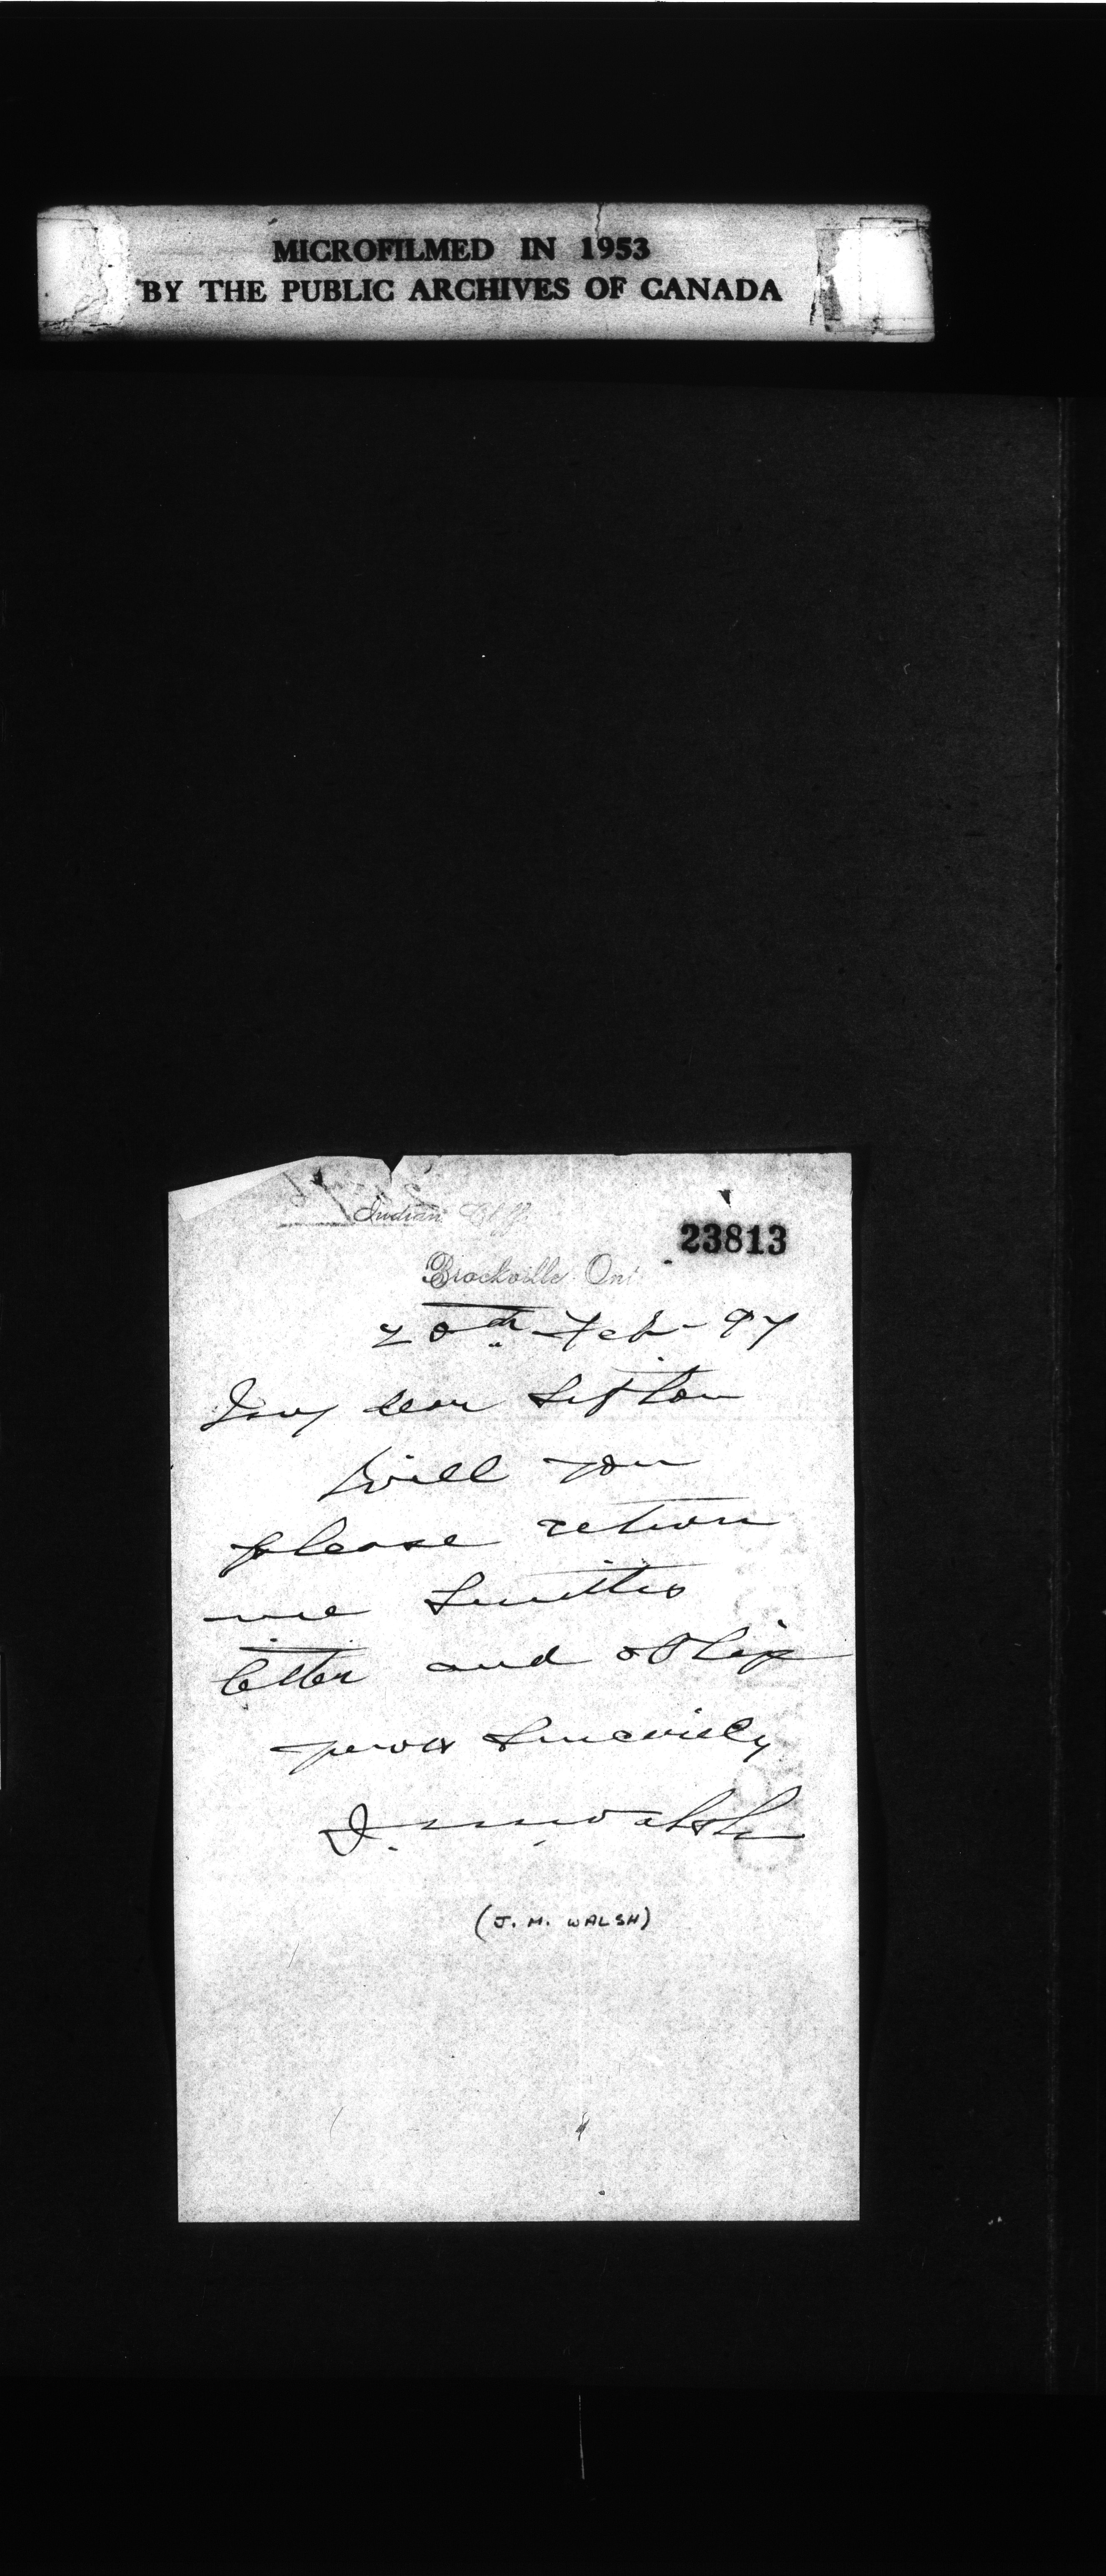 MICROFILMED IN 1953
BY THE PUBLIC ARCHIVES OF CANADA
Indian Cliff
23813
Brockville Ont
20th Feb - 97
My dear Sifton
Will you
please return
me Smiths
letter and oblige
yours Sincerely
J. M Walsh
(J. M. WALSH)